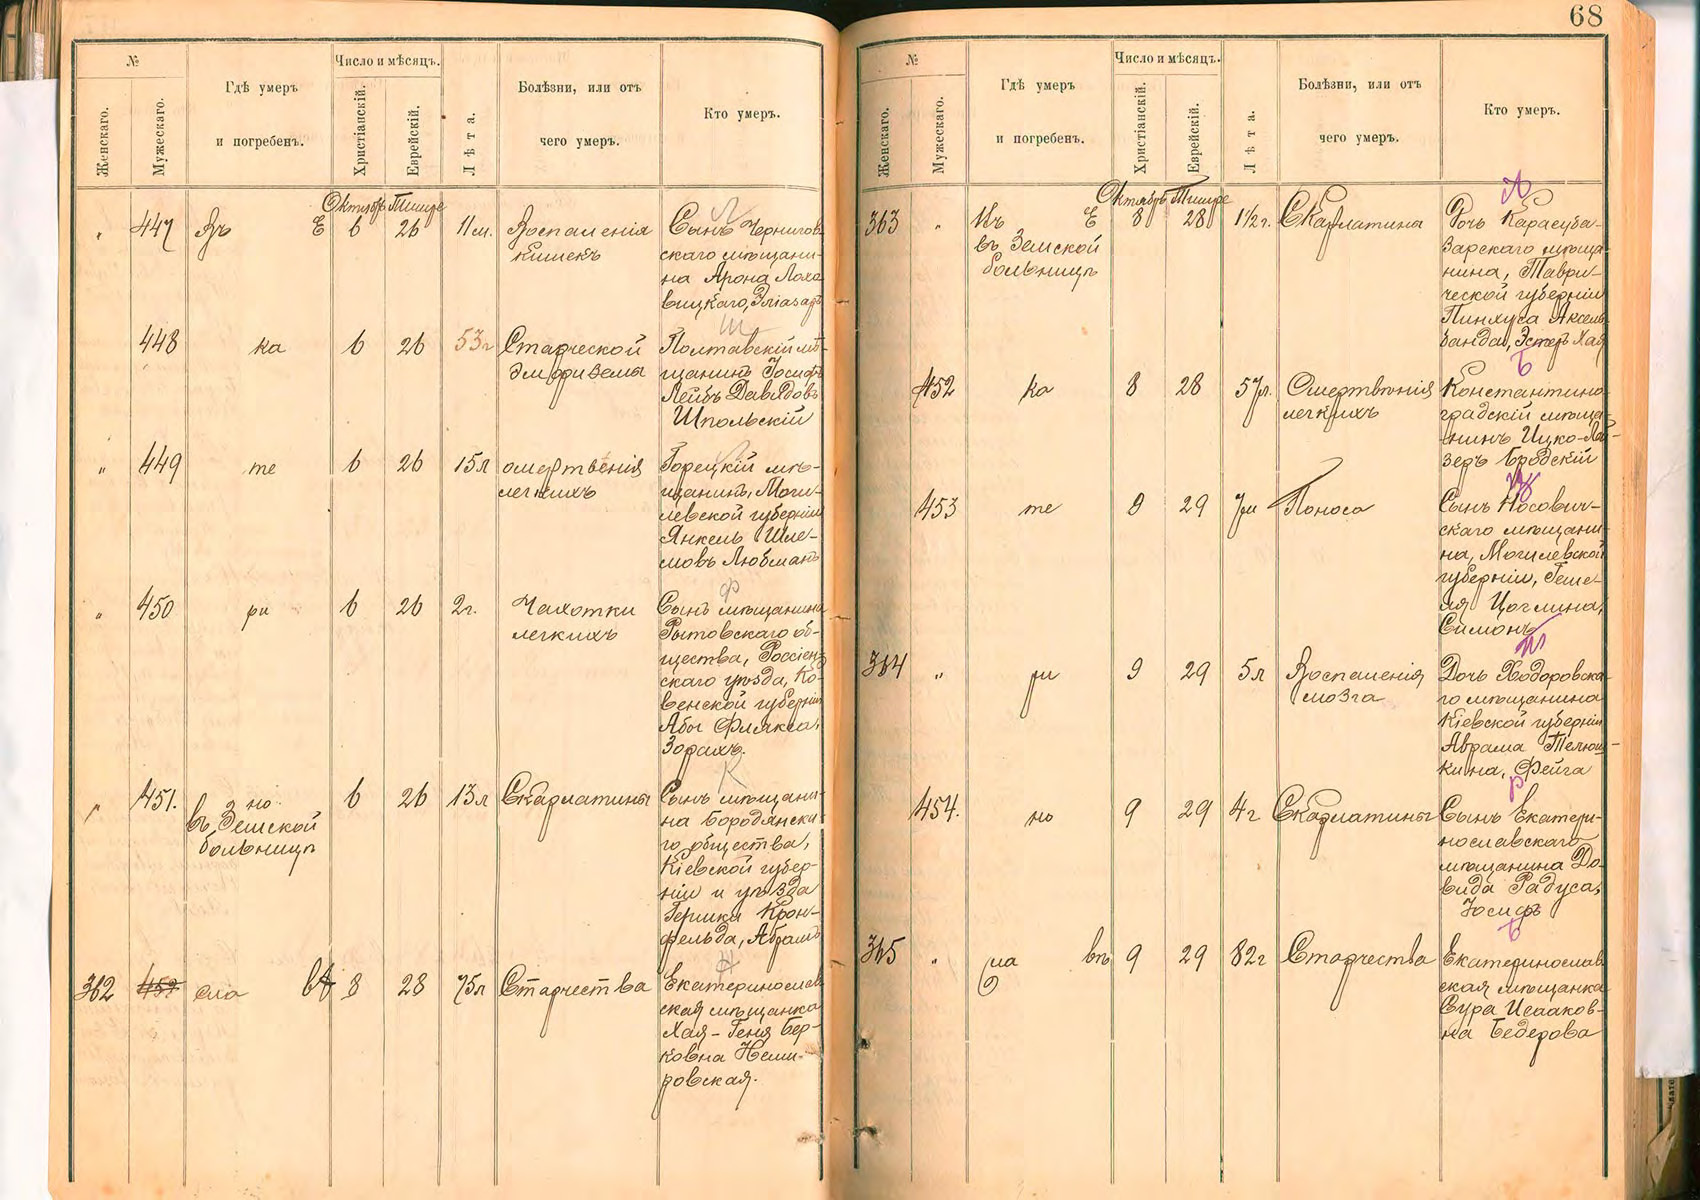 №
Женскаго.
Мужескаго.
Гдѣ умеръ
и погребенъ.
Число и мѣсяцъ.
Христіанскій.
Еврейскій.
Лѣта.
Болѣзни, или отъ
чего умеръ.
Кто умеръ.
Октябрь Тишре
„ 447 Въ Е 6 26 11 м. Воспаленія
кишекъ
Л
Сынъ Чернигов-
скаго мѣщани-
на Арона Лоха
вицкаго, Эліазаръ
448 ка 6 26 53 г Старческой
эмфиземы
Ш
Полтавскій мѣ-
щанинъ Іосифъ
Лейбъ Давидовъ
Шпольскій
„ 449 те 6 26 15 л омертвенія
легкихъ
Л
Горецкій мѣ-
щанинъ, Моги-
левской губерніи
Янкель Шле-
мовъ Любманъ
„ 450 ри 6 26 2 г. Чахотки
легкихъ
Ф
Сынъ мѣщанина
Рытовскаго об-
щества, Россіен-
скаго уѣзда, Ко-
венской губерніи
Абы Флякса,
Зорахъ.
„ 451. но
въ Земской
больницѣ
6 26 13 л Скарлатины
К
Сынъ мѣщани-
на Бородянска-
го общества,
Кіевской губер-
ніи и уѣзда
Гершки Крон-
фельда, Абрамъ
362 452 сла 8 28 75 л Старчества
Н
Екатеринослав
ская мѣщанка
Хая-Геня Бер-
ковна Неми-
ровская.
68
№
Женскаго.
Мужескаго.
Гдѣ умеръ
и погребенъ.
Число и мѣсяцъ.
Христіанскій.
Еврейскій.
Лѣта.
Болѣзни, или отъ
чего умеръ.
Кто умеръ.
Октябрь Тишре
363 „ Въ Е
въ Земской
больницѣ
8 28 1 1/2 г. Скарлатина
А
Дочь Карасуба-
зарскаго мѣща-
нина, Таври-
ческой губерніи
Пинхуса Аксель-
банда, Эстеръ Хая
452 ка 8 28 57 л. Омертвѣнія
легкихъ
Б
Константино
градскій мѣща-
нинъ Ицко-Лей-
зеръ Бродскій
453 те 9 29 7 м Поноса
Ц
Сынъ Носович-
скаго мѣщани-
на, Могилевской
губерніи, Геше-
ля Цоглина,
Симонъ
364 „ ри 9 29 5 л Воспаленія
мозга
Т
Дочь Ходоровска-
го мѣщанина
Кіевской губерніи
Аврама Телюш-
кина, Фейга
454. но 9 29 4 г Скарлатины
Р
Сынъ Екатери-
нославскаго
мѣщанина До-
вида Радуса,
Іосифъ
365 „ сла въ 9 29 82 г Старчества
Б
Екатеринослав
ская мѣщанка
Сура Исааков-
на Бедерова